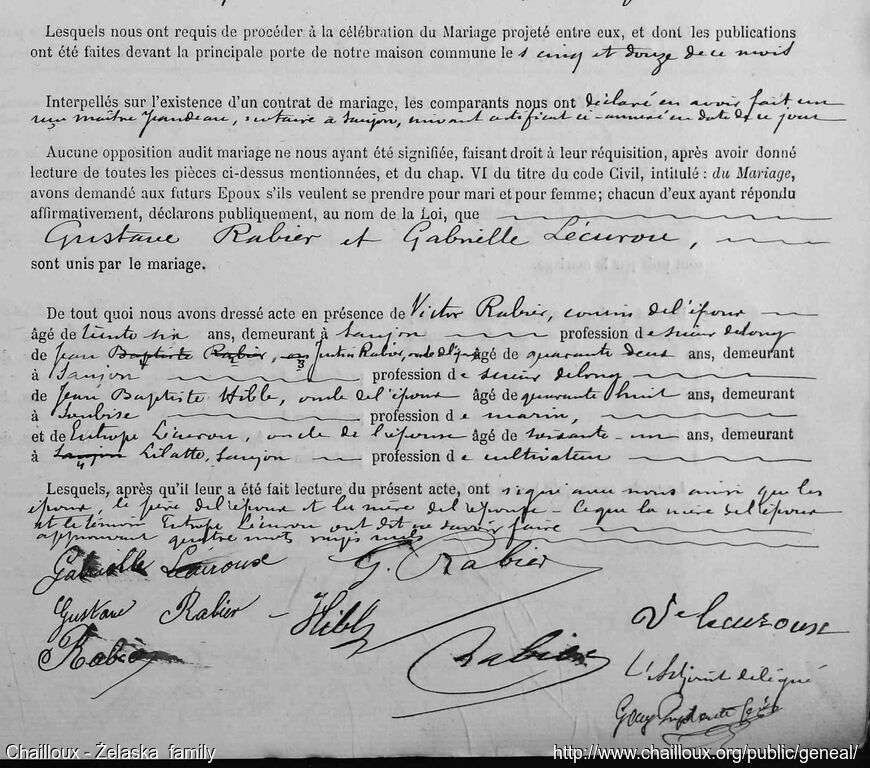 Lesquels nous ont requis de procéder à la célébration du Mariage projeté entre eux, et dont les publications
ont été faites devant la principale porte de notre maison commune les cinq et douze de ce mois
Interpellés sur l'existence d'un contrat de mariage, les comparants nous ont déclaré en avoir fait un
reçu maître Jeandeau, notaire à Saujon, suivant certificat ci-annexé en date de ce jour
Aucune opposition audit mariage ne nous ayant été signifiée, faisant droit à leur réquisition, après avoir donné
lecture de toutes les pièces ci-dessus mentionnées, et du chap. VI du titre du code Civil, intitulé : du Mariage,
avons demandé aux futurs Epoux s'ils veulent se prendre pour mari et pour femme ; chacun d'eux ayant répondu
affirmativement, déclarons publiquement, au nom de la Loi, que
Gustave Rabier et Gabrielle Lécurou,
sont unis par le mariage.
De tout quoi nous avons dressé acte en présence de Victor Rabier, cousin de l'époux
âgé de trente six ans, demeurant à Saujon profession de scieur de long
de Jean Baptiste Rabier, Rabier, oncle de l'époux âgé de quarante deux ans, demeurant
à Saujon profession de scieur de long
de Jean Baptiste Hible, oncle de l'époux âgé de quarante huit ans, demeurant
à Soubise profession de marin,
et de Eutrope Lécurou, oncle de l'épouse âgé de soixante-un ans, demeurant
à Saujon Lilatte, Saujon profession de cultivateur
Lesquels, après qu'il leur a été fait lecture du présent acte, ont signé avec nous ainsi que les
époux, le père de l'époux et la mère de l'épouse - Ce que la mère de l'époux
et le témoin Eutrope Lécurou ont dit ne savoir faire
approuvant quatre mots rayés nuls
Gabrielle Lécuroux G. Rabier
Gustave Rabier - Hible
Rabier Rabier Ve Lecuroux
L'Adjoint délégué
Chailloux - Żelaska family http://www.chailloux.org/public/geneal/